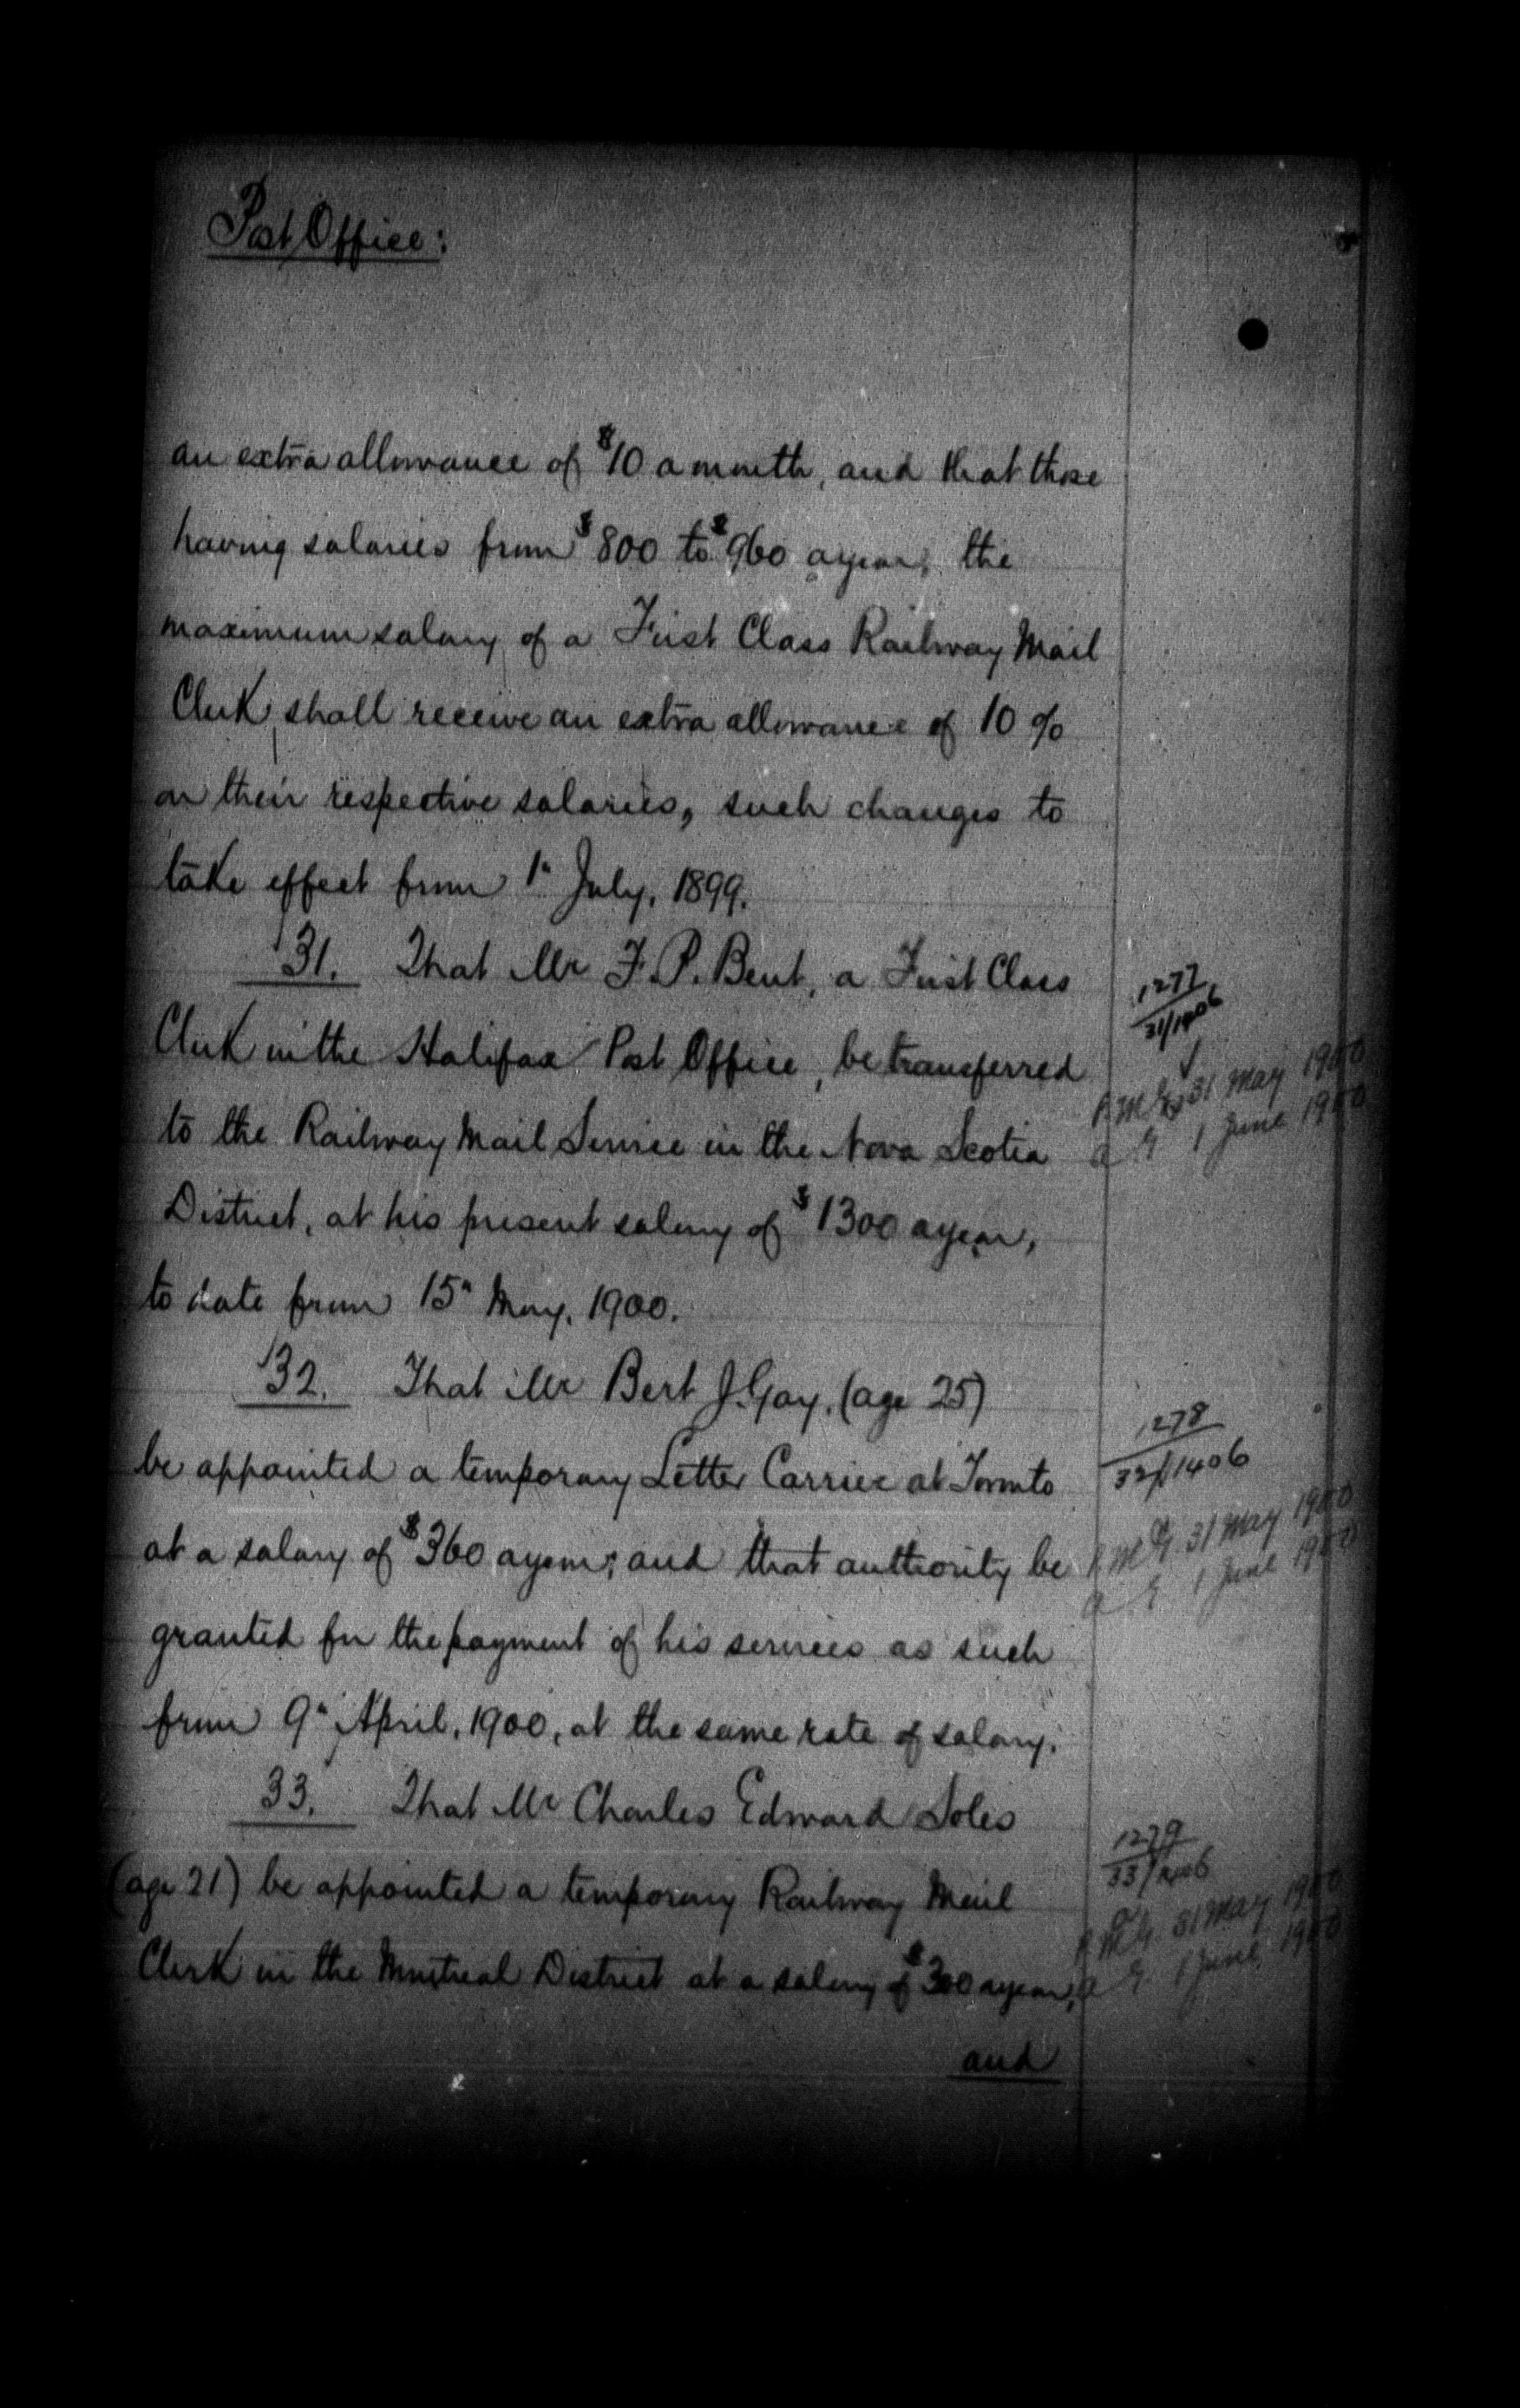 Post Office:
an extra allowance of $10 a month, and that those
having salaries from $800 to $960 a year, the
maximum salary of a First Class Railway Mail
Clerk, shall receive an extra allowance of 10 %
on their respective salaries, such changes to
take effect from 1" July, 1899.
31. That Mr F. P. Bent, a First Class
1277
31/1406
Clerk in the Halifax Post Office, be transferred
P.M.G. 31 May 1900
to the Railway Mail Service in the Nova Scotia
a G 1 June 1900
District, at his present salary of $1300 a year,
to date from 15" May, 1900.
32. That Mr Bert J. Gay, (age 25)
1278
32/1406
be appointed a temporary Letter Carrier at Toronto
at a salary of $360 a year; and that authority be
P.M.G. 31 May 1900
a G 1 June 1900
granted for the payment of his services as such
from 9" April, 1900, at the same rate of salary.
33. That Mr Charles Edward Soles
1279
33/1406
(age 21) be appointed a temporary Railway Mail
P.M.G. 31 May 1900
Clerk in the Montreal District at a salary of $300 a year,
a G. 1 June 1900
and